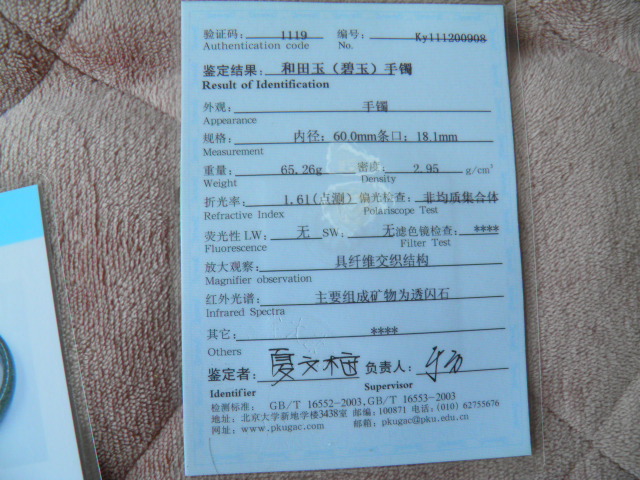 验证码: 1119 编号: Ky111200908
Authentication code No.
鉴定结果: 和田玉（碧玉）手镯
Result of Identification
外观: 手镯
Appearance
规格: 内径: 60.0mm条口: 18.1mm
Measurement
重量: 65.26g 密度: 2.95 g/cm³
Weight Density
折光率: 1.61(点测) 偏光检查: 非均质集合体
Refractive Index Polariscope Test
荧光性 LW: 无 SW: 无 滤色镜检查: ****
Fluorescence Filter Test
放大观察: 具纤维交织结构
Magnifier observation
红外光谱: 主要组成矿物为透闪石
Infrared Spectra
其它: ****
Others
鉴定者: 夏文 负责人:
Identifier Supervisor
检测标准: GB/T 16552-2003,GB/T 16553-2003
地址: 北京大学新地学楼3438室 邮编: 100871 电话: (010) 62755676
网址: www.pkugac.com 邮箱: pkugac@pku.edu.cn